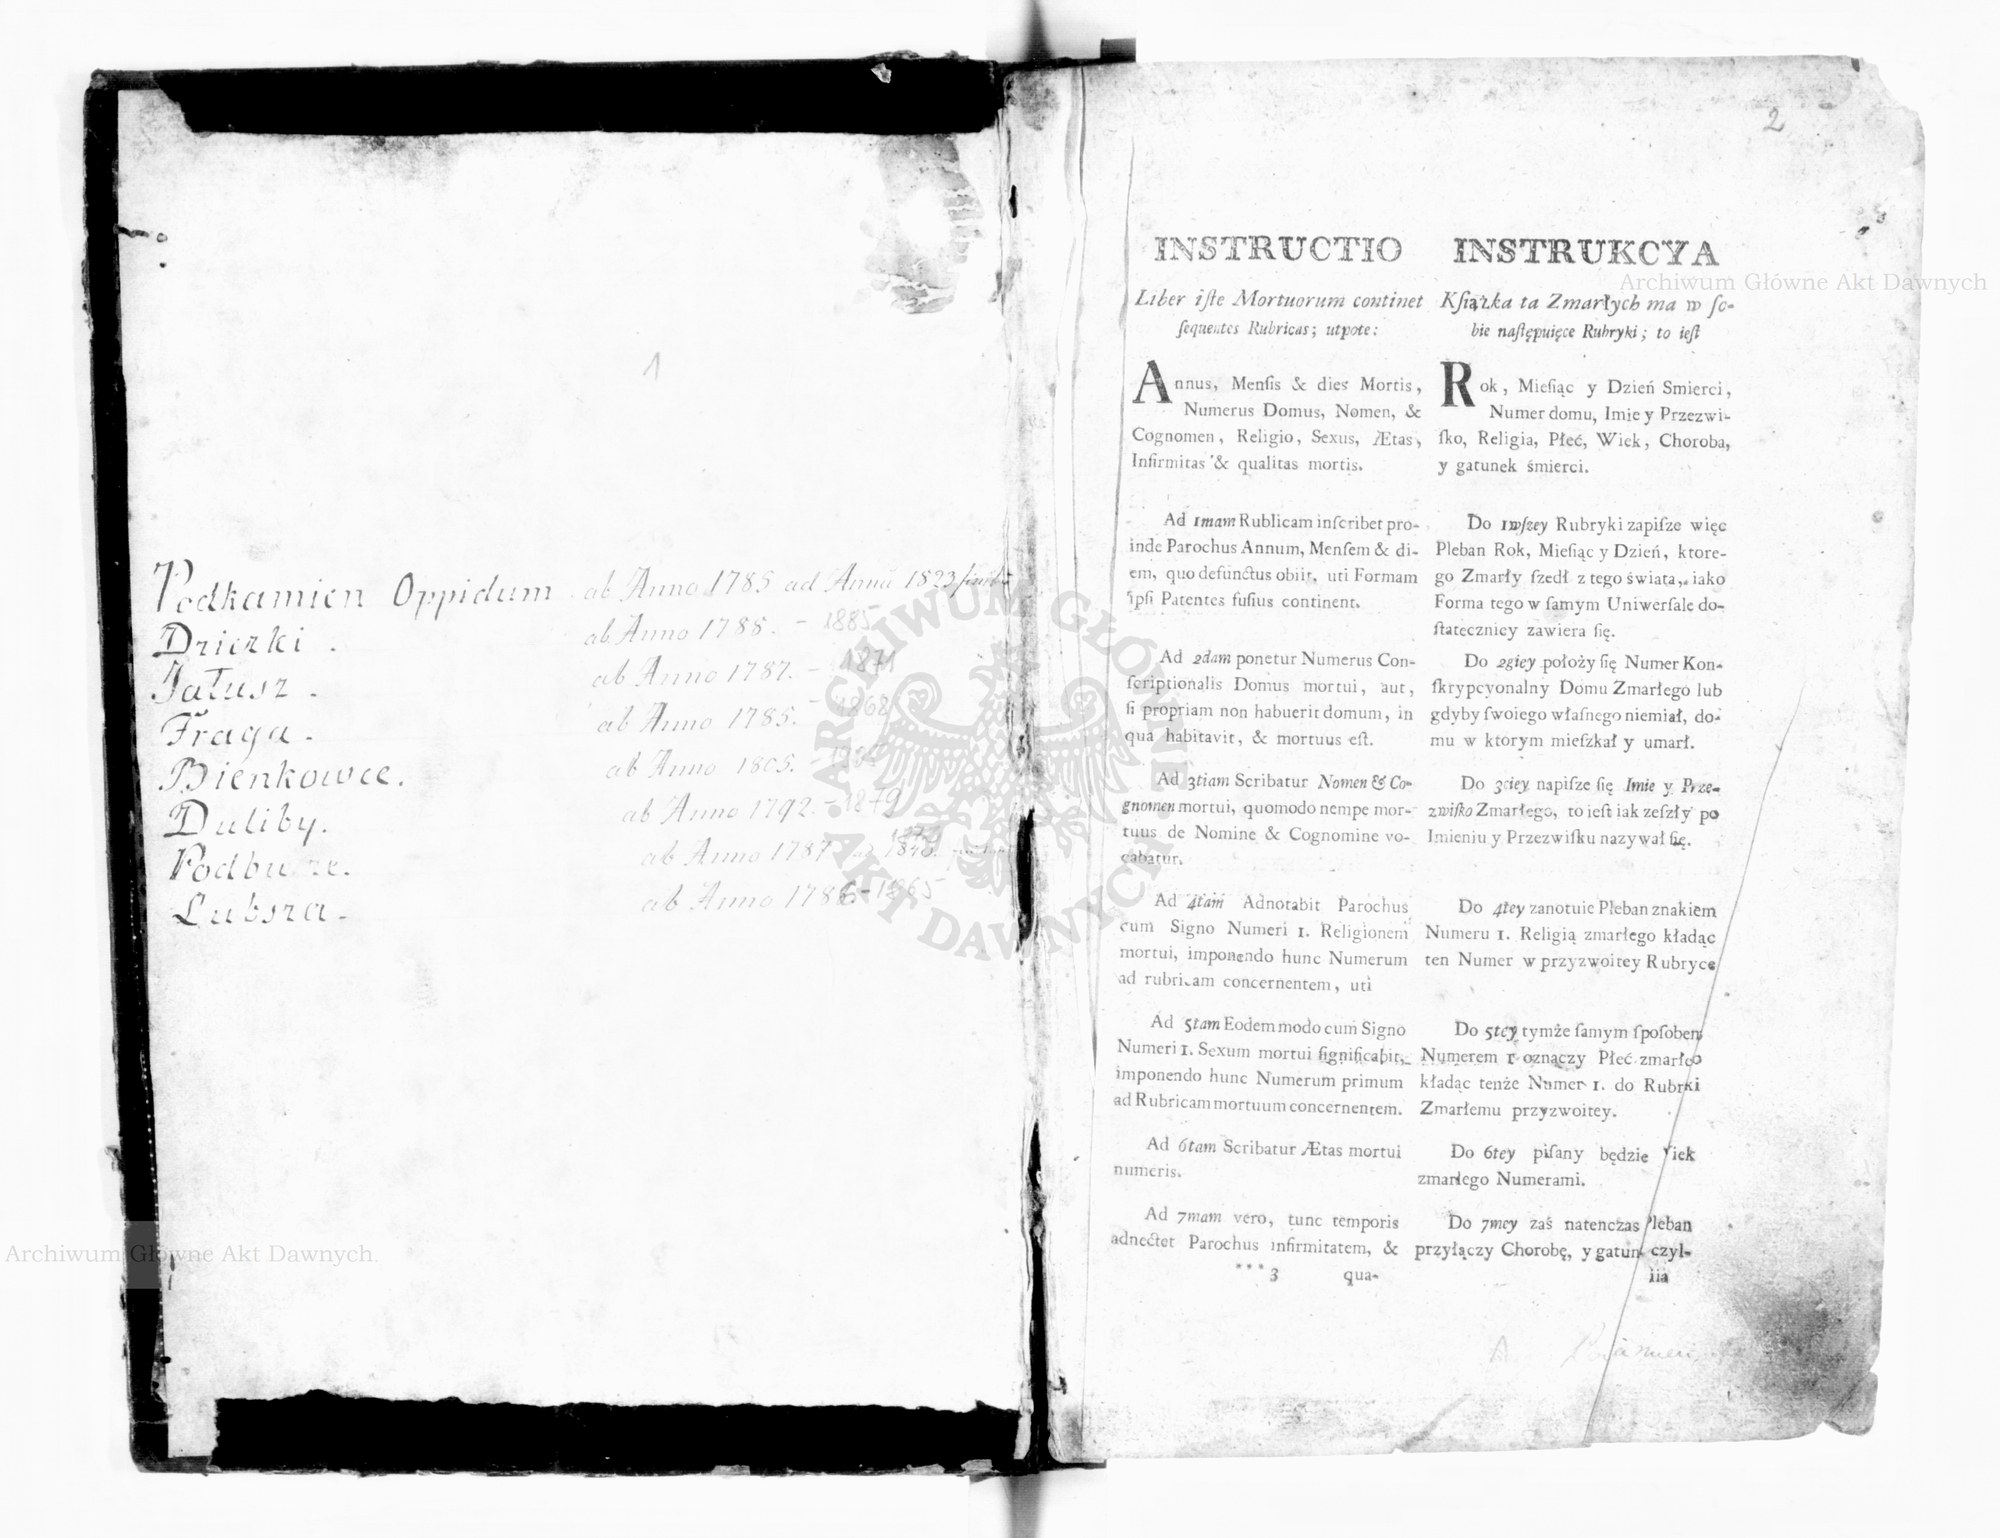 1
Podkamien Oppidum ab Anno 1785 ad Anno 1823
Dziczki. ab Anno 1788. - 1885
Jałusz. ab Anno 1787. - 1871
Fraga. ab Anno 1785. - 1868
Bienkowce. ab Anno 1805.
Duliby. ab Anno 1792. - 1879
Podburze. ab Anno 1787
Lubsza. ab Anno 1786 - 1865
2
3
INSTRUCTIO
Liber iſte Mortuorum continet
ſequentes Rubricas; utpote:
Annus, Menſis & dies Mortis,
Numerus Domus, Nomen, &
Cognomen, Religio, Sexus, Ætas,
Infirmitas & qualitas mortis.
Ad 1mam Rublicam inſcribet pro-
inde Parochus Annum, Menſem & di-
em, quo defunctus obiit, uti Formam
ipſi Patentes fuſius continent.
Ad 2dam ponetur Numerus Con-
ſcriptionalis Domus mortui, aut,
ſi propriam non habuerit domum, in
qua habitavit, & mortuus eſt.
Ad 3tiam Scribatur Nomen & Co-
gnomen mortui, quomodo nempe mor-
tuus de Nomine & Cognomine vo-
cabatur.
Ad 4tam Adnotabit Parochus
cum Signo Numeri 1. Religionem
mortui, imponendo hunc Numerum
ad rubricam concernentem, uti
Ad 5tam Eodem modo cum Signo
Numeri 1. Sexum mortui ſignificabit,
imponendo hunc Numerum primum
ad Rubricam mortuum concernentem.
Ad 6tam Scribatur Ætas mortui
numeris.
Ad 7mam vero, tunc temporis
adnectet Parochus infirmitatem, &
***3 qua-
INSTRUKCYA
Kſiążka ta Zmarłych ma w ſo-
bie naſtępuięce Rubryki; to ieſt
Rok, Mieſiąc y Dzień Smierci,
Numer domu, Imie y Przezwi-
ſko, Religia, Płeć, Wiek, Choroba,
y gatunek śmierci.
Do 1wſzey Rubryki zapiſze więc
Pleban Rok, Mieſiąc y Dzień, ktore-
go Zmarły ſzedł z tego świata, iako
Forma tego w ſamym Uniwerſale do-
ſtateczniey zawiera ſię.
Do 2giey położy ſię Numer Kon-
ſkrypcyonalny Domu Zmarłego lub
gdyby ſwoiego właſnego niemiał, do-
mu w ktorym mieſzkał y umarł.
Do 3ciey napiſze ſię Imie y Prze-
zwiſko Zmarłego, to ieſt iak zeſzły po
Imieniu y Przezwiſku nazywał ſię.
Do 4tey zanotuie Pleban znakiem
Numeru 1. Religią zmarłego kładąc
ten Numer w przyzwoitey Rubryce
Do 5tey tymże ſamym ſpoſobem
Numerem 1 oznaczy Płeć zmarłeo
kładąc tenże Numer 1. do Rubrki
Zmarłemu przyzwoitey.
Do 6tey piſany będzie iek
zmarłego Numerami.
Do 7mey zaś natenczas Pleban
przyłączy Chorobę, y gatun- czyl-
iia
Archiwum Główne Akt Dawnych
Archiwum Główne Akt Dawnych
ARCHIWUM GŁÓWNE
AKT DAWNYCH